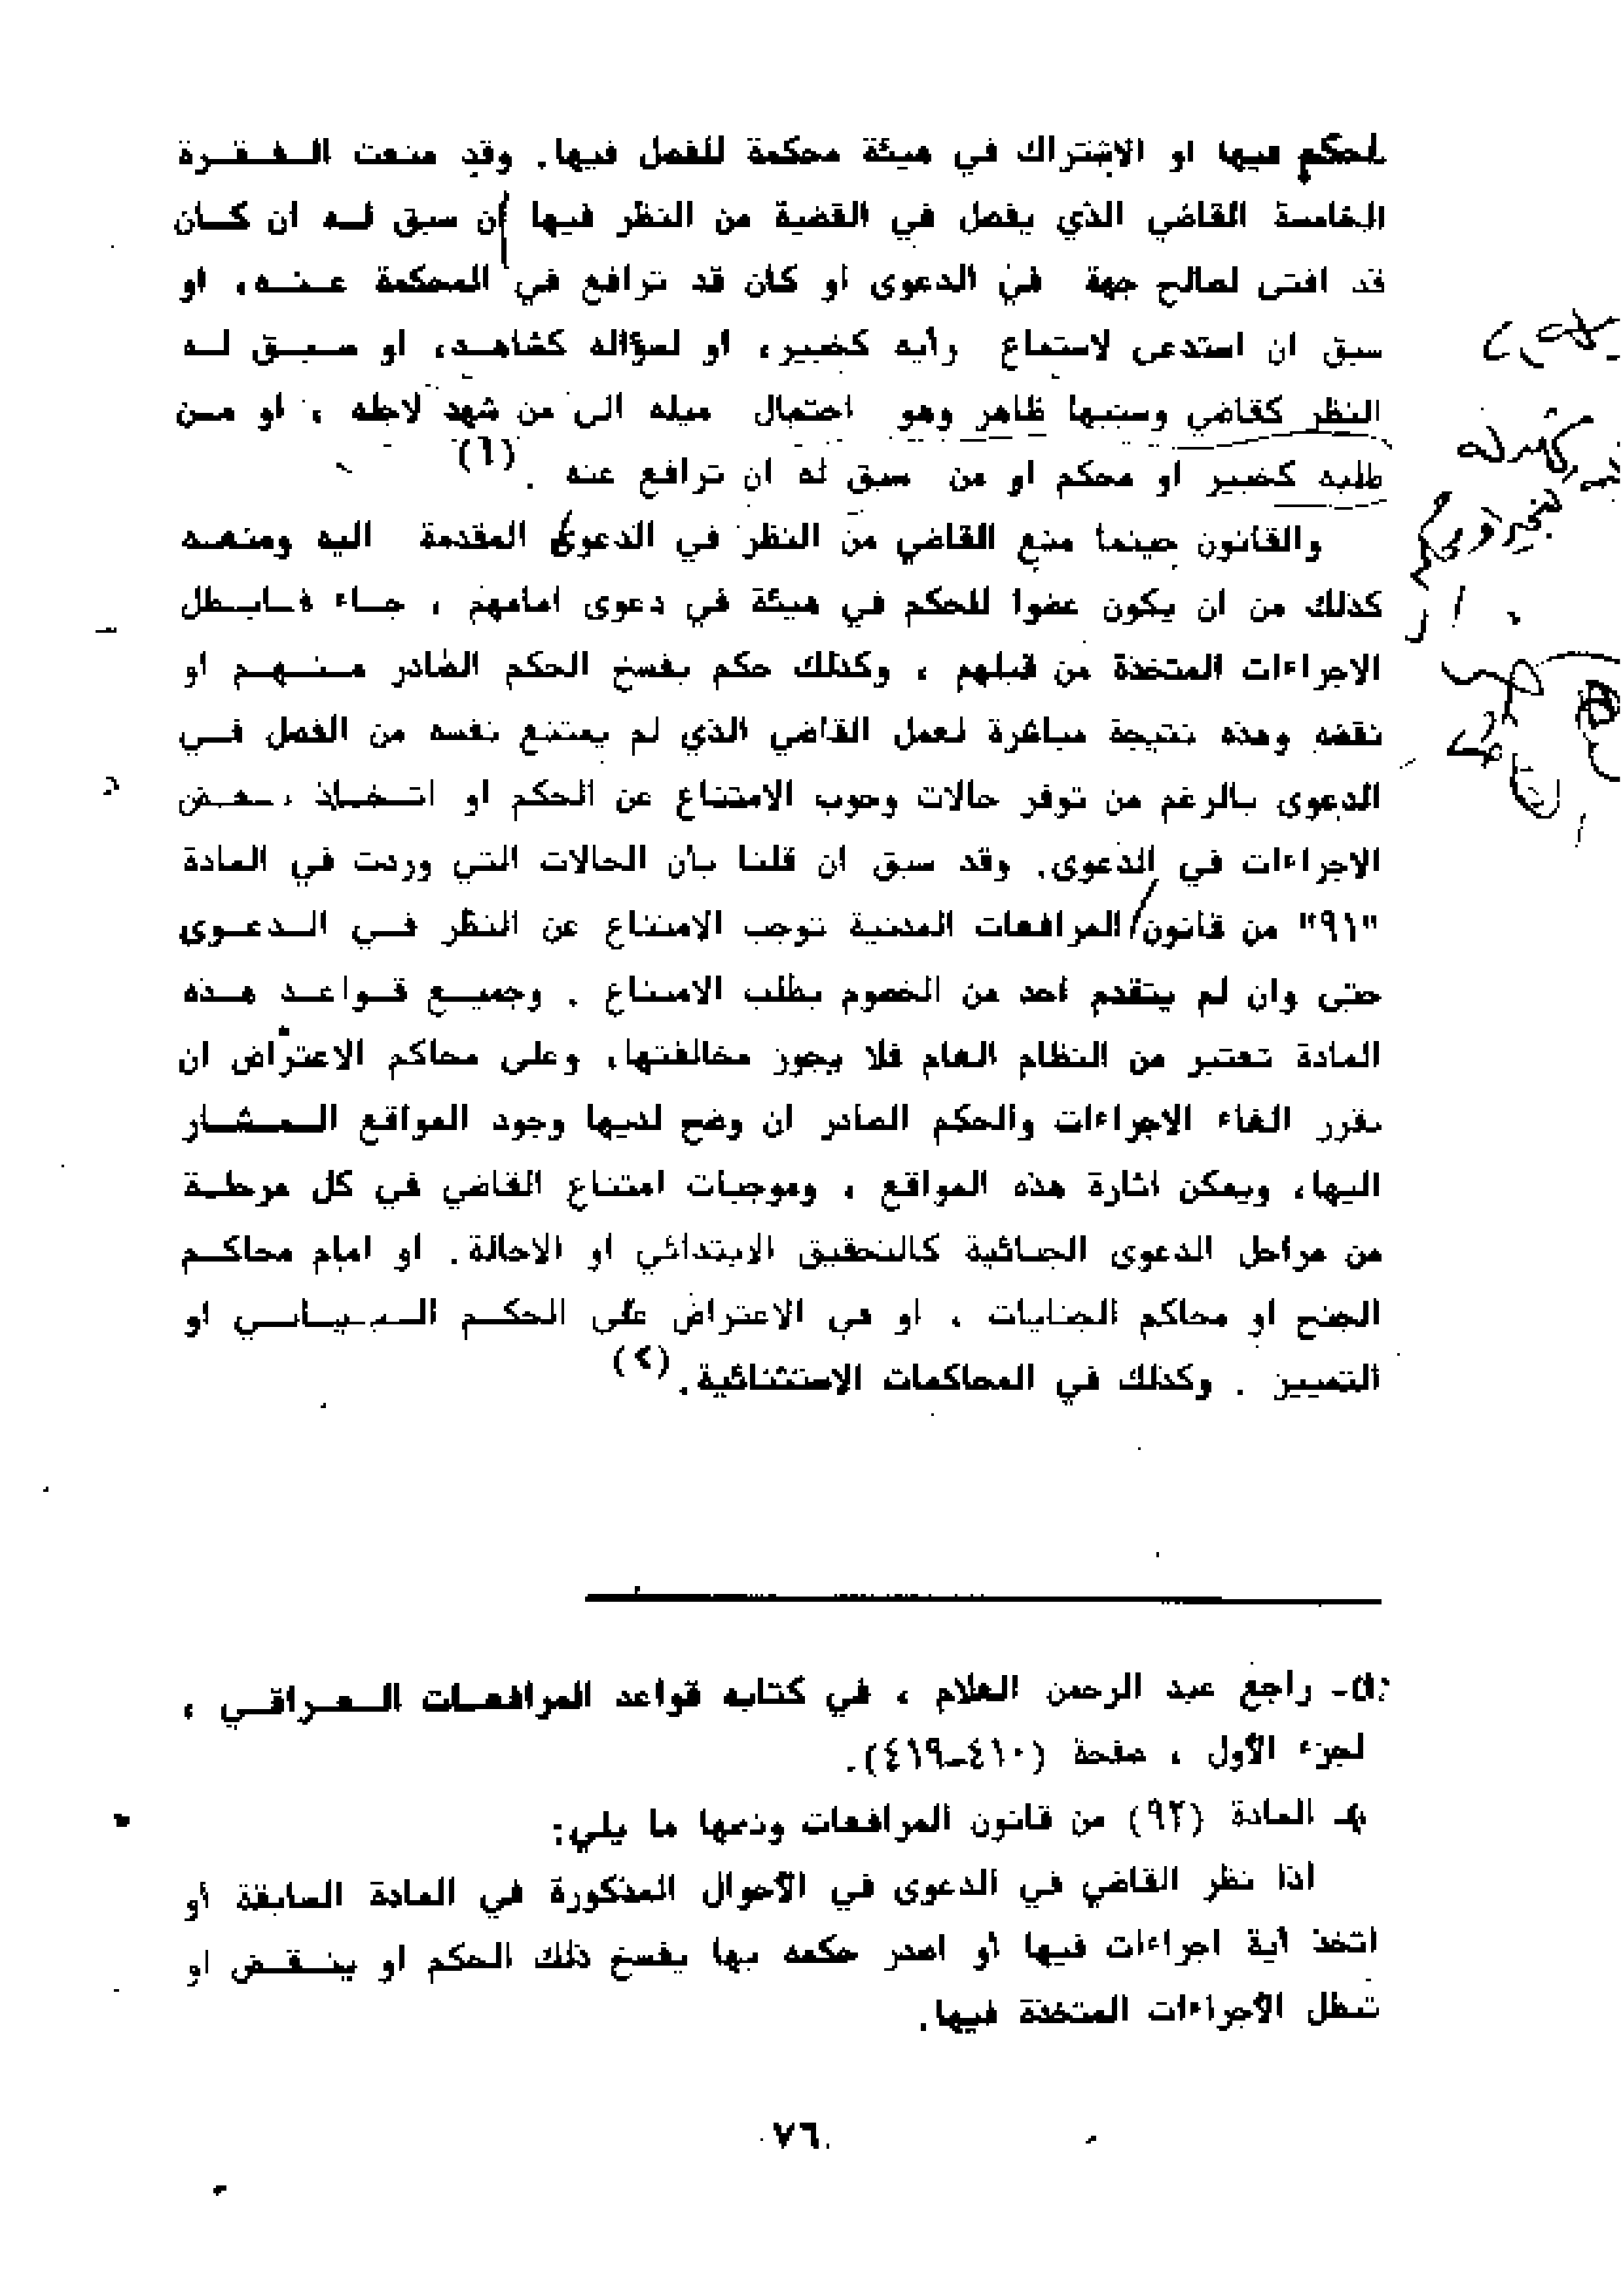 للحكم فيها او الاشتراك في هيئة محكمة للفصل فيها. وقد منعت الفقرة
الخامسة القاضي الذي يفصل في القضية من النظر فيها ان سبق له ان كان
قد افتى لصالح جهة في الدعوى او كان قد ترافع في المحكمة عنه، او
سبق ان استدعى لاستماع رأيه كخبير، او لسؤاله كشاهد، او سبق له
النظر كقاضي وسببها ظاهر وهو احتمال ميله الى من شهد لاجله ، او من
طلبه كخبير او محكم او من سبق له ان ترافع عنه .(٦)
والقانون حينما منع القاضي من النظر في الدعوى المقدمة اليه ومنعه
كذلك من ان يكون عضوا للحكم في هيئة في دعوى امامهم ، جاء فابطل
الاجراءات المتخذة من قبلهم ، وكذلك حكم بفسخ الحكم الصادر منهم او
نقضه وهذه نتيجة مباشرة لعمل القاضي الذي لم يمتنع نفسه من الفصل في
الدعوى بالرغم من توفر حالات وجوب الامتناع عن الحكم او اتخاذ بعض
الاجراءات في الدعوى. وقد سبق ان قلنا بان الحالات التي وردت في المادة
"٩١" من قانون المرافعات المدنية توجب الامتناع عن النظر في الدعوى
حتى وان لم يتقدم احد من الخصوم بطلب الامتناع . وجميع قواعد هذه
المادة تعتبر من النظام العام فلا يجوز مخالفتها. وعلى محاكم الاعتراض ان
تقرر الغاء الاجراءات والحكم الصادر ان وضح لديها وجود المواقع المشار
اليها، ويمكن اثارة هذه المواقع ، وموجبات امتناع القاضي في كل مرحلة
من مراحل الدعوى الجنائية كالتحقيق الابتدائي او الاحالة. او امام محاكم
الجنح او محاكم الجنايات ، او في الاعتراض على الحكم او
التمييز . وكذلك في المحاكمات الاستثنائية.
راجع عبد الرحمن العلام ، في كتابه قواعد المرافعات العراقي ،
لجزء الأول ، صفحة (٤١٠-٤١٩).
المادة (٩٢) من قانون المرافعات ونصها ما يلي:
اذا نظر القاضي في الدعوى في الأحوال المذكورة في المادة السابقة أو
اتخذ اية اجراءات فيها أو اصدر حكمه بها يفسخ ذلك الحكم او ينقض او
تبطل الأجراءات المتخذة فيها.
٧٦